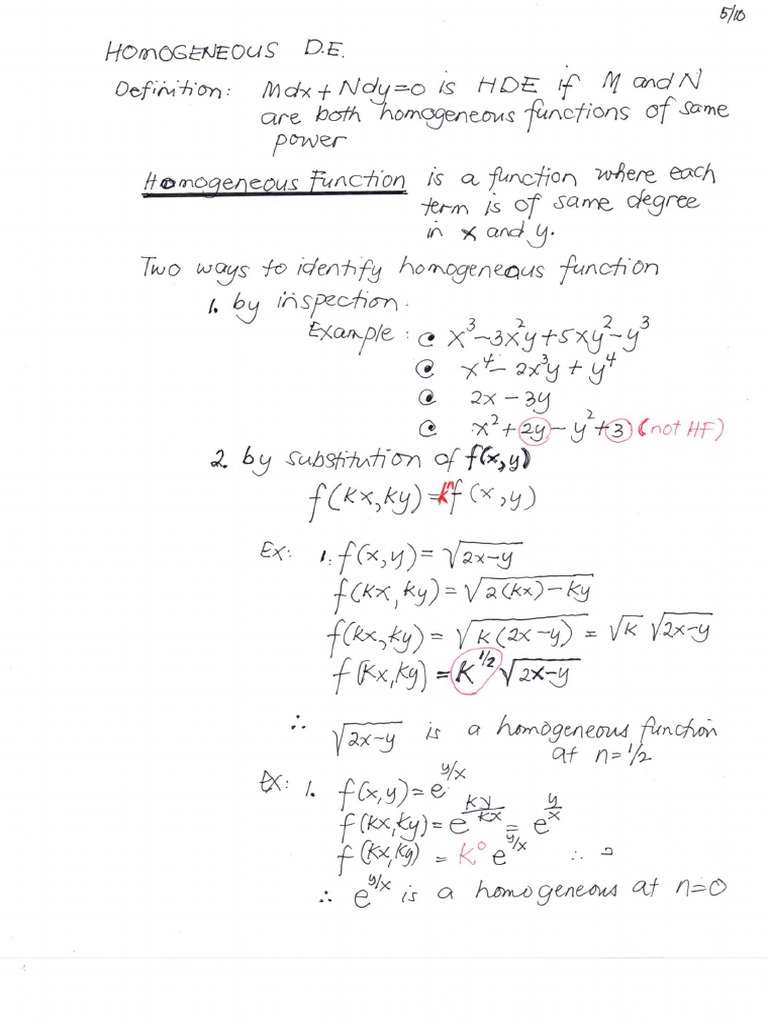 5/10
HOMOGENEOUS D.E.
Definition: Mdx + Ndy=0 is HDE if M and N
are both homogeneous functions of same
power
Homogeneous Function is a function where each
term is of same degree
in x and y.
Two ways to identify homogeneous function
1. by inspection:
Example: x³-3x²y+5xy²-y³
x⁴- 2x³y + y⁴
2x - 3y
x² + 2y - y² + 3 (not HF)
2. by substitution of f(x,y)
f(kx,ky) = kⁿf(x,y)
Ex: 1. f(x,y) = √(2x-y)
f(kx,ky) = √(2(kx)-ky)
f(kx,ky) = √(k(2x-y)) = √k √(2x-y)
f(kx,ky) = k^1/2 √(2x-y)
∴ √(2x-y) is a homogeneous function
at n=1/2
Ex: 1. f(x,y) = e^y/x
f(kx,ky) = e^ky/kx = e^y/x
f(kx,ky) = k⁰ e^y/x ∴
∴ e^y/x is a homogeneous at n=0